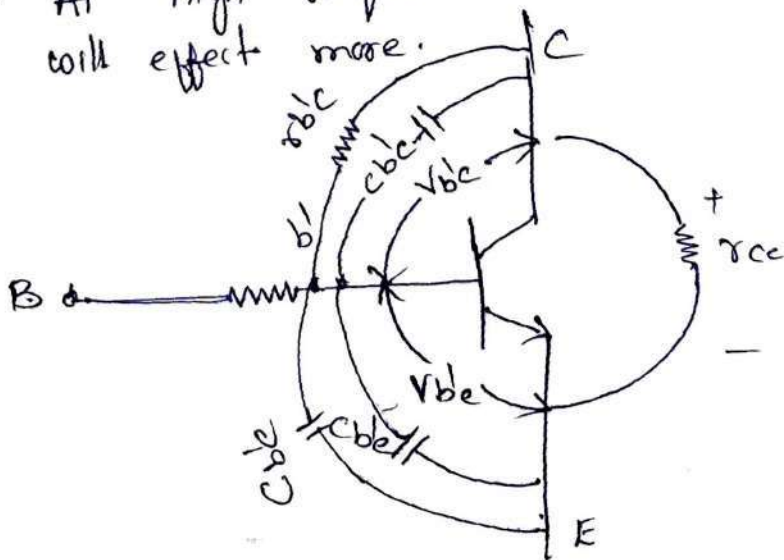 At high
will effect more.
C
rb'c
cb'c
Vb'c
+
b'
rce
B
-
Vb'e
Cb'e
Cb'c
E